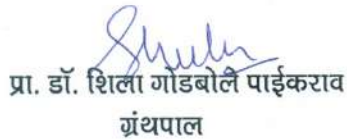 प्रा. डॉ. शिला गोडबोले पाईकराव
ग्रंथपाल